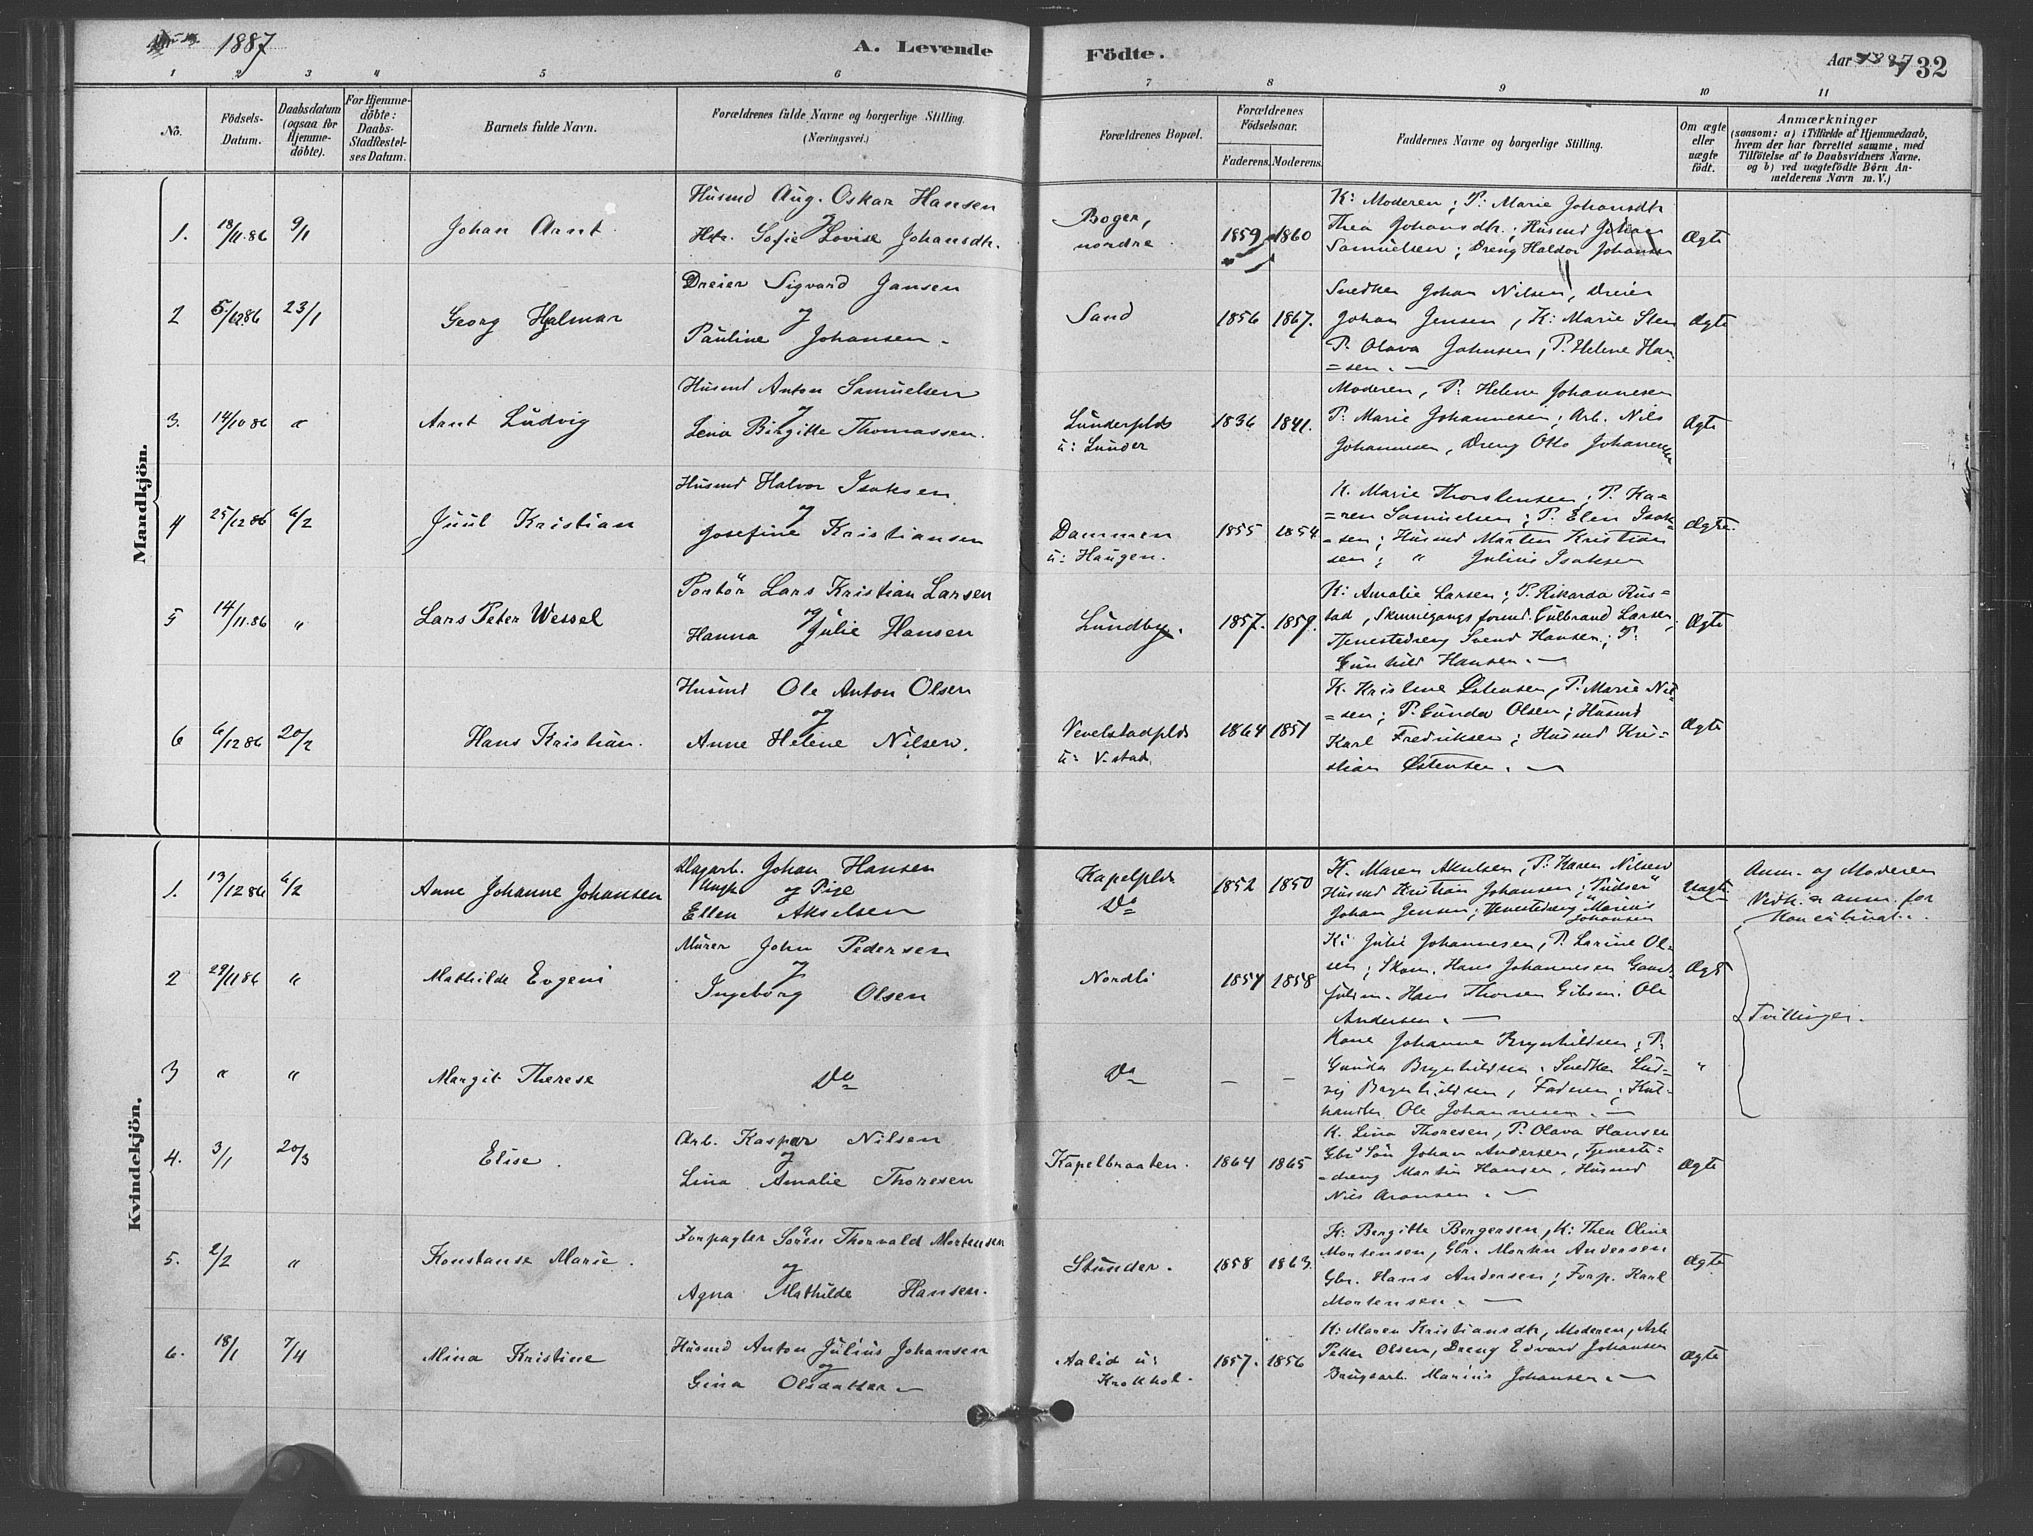 1887
A. Levende
Födte.
Aar 1887
32
1 2 3 4 5 6 7 8 9 10 11
No.
Födsels-
Datum.
Daabsdatum
(ogsaa for
Hjemme-
döbte).
For Hjemme-
döbte:
Daabs-
Stadfæstel-
ses Datum.
Barnets fulde Navn.
Forældrenes fulde Navne og borgerlige Stilling.
(Næringsvei.)
Forældrenes Bopæl.
Forældrenes
Födselsaar.
Faderens. Moderens.
Faddernes Navne og borgerlige Stilling.
Om ægte
eller
uægte
födt.
Anmærkninger
(saasom: a) i Tilfælde af Hjemmedaab,
hvem der har forrettet samme, med
Tilföielse af to Daabsvidners Navne.
og b) ved uægtefödte Börn An-
melderens Navn m. V.)
Mandkjön.
1. 18/11.86 9/1
Johan Arnt
Husmd Aug. Oskar Hansen
og
Htr. Sofie Lovise Johansdtr.
Boger,
nordre.
1859 1860
K: Moderen; P: Marie Johansdtr
Thea Johansdtr; Husmd Johan
Samuelsen; Dreng Haldor Johansen
Ægte
2 5/12.86 23/1
Georg Hjalmar
Dreier Sigvard Jansen
og
Pauline Johansen.
Sand
1856 1867.
Snedker Johan Nilsen, Dreier
Johan Jensen, K: Marie Sten
P. Olava Johnsen, P. Helene Han
=sen.
Ægte
3. 14/10 86 "
Arnt Ludvig
Husmd Anton Samuelsen
og
Lena Birgitte Thomassen.
Lunderplds
u: Lunder
1836 1841.
Moderen, P: Helene Johannesen
P: Marie Johannesen; Arb. Nils
Johannesen, Dreng Otto Johannesen
Ægte
4 25/12 86 6/2
Juul Kristian
Husmd Halvor Isaksen
og
Josefine Kristiansen
Dammen
u: Haugen.
1855 1854
K. Marie Thorstensen, P. Ka=
=ren Samuelsen; P. Elen Isak=
=sen; Husmd Martin Kristian
sen; " Julius Isaksen
Ægte.
5 14/11.86 "
Lars Peter Wessel
Portör Lars Kristian Larsen
og
Hanna Julie Hansen
Lundby.
1857. 1859.
K: Amalie Larsen; P. Rikarda Rus=
tad, Skinnegangsformd. Gulbrand Larsen;
Tjenestedreng Svend Hansen; P.
Gunhild Hansen.
Ægte
6 6/12 86 20/2
Hans Kristian.
Husmd Ole Anton Olsen
og
Anne Helene Nilsen.
Vevelstadplds
u: V-stad.
1864 1851
K. Kristine Østensen, P. Marie Nil=
=sen; P. Gunda Olsen; Husmd
Karl Fredriksen; Husmd Kri=
stian Østensen.
Ægte
Kvindekjön.
1. 13/12 86 6/2
Anne Johanne Johansen
Dagarb. Johan Hansen
Ungk og Pige
Ellen Akselsen
Kapelplds
Do
1852 1850
K. Maren Akselsen, P. Karen Nilsen
Husmd Kristian Johansen; "Pudser"
Johan Jensen; Tjenestedreng Marius
Johansen
Uægte
Anm. og Moderen
Vedk. er anm. for
Konkubinat.
2 29/11 86 "
Mathilde Evgeni
Murer John Pedersen
og
Ingeborg Olsen
Nordli
1854 1858
K: Julie Johannesen, P. Larine Ol=
sen; Skom. Hans Johannesen
Hans Thorsen Ole
Andersen.
Ægte
Tvillinger.
3 " "
Margit Therese
Do
Do
— —
Kone Johanne Brynhildsen; P.
Gunda Brynhildsen, Snedker Lud=
vig Brynhildsen, Faderen,
handler Ole Johannesen.
"
4. 3/1 20/3
Elise.
Arb. Kaspar Nilsen
og
Lina Amalie Thoresen
Kapelbraaten.
1864 1865
K. Lina Thoresen, P. Olava Hansen
Gbr Sön Johan Andersen, Tjeneste=
=dreng Martin Hansen, Husmd
Nils Aronsen.
Ægte
5. 2/2 "
Konstanse Marie.
Forpagter Sören Thorvald Mortensen
og
Agna Mathilde Hansen.
Stunder.
1858 1863.
K: Bergitte Bergersen, K: Thea Oline
Mortensen, Gbr. Morten Andersen
Gbr. Hans Andersen; Forp. Karl
Mortensen.
Ægte
6. 18/1 7/4
Mina Kristine
Husmd Anton Julius Johansen
og
Gina Olsdatter.
Aalid u:
Krokhol.
1857. 1856
K: Maren Kristiansdtr, Moderen, Arb
Petter Olsen, Dreng Edvard Johansen
Brugsarb. Marius Johansen.
Ægte